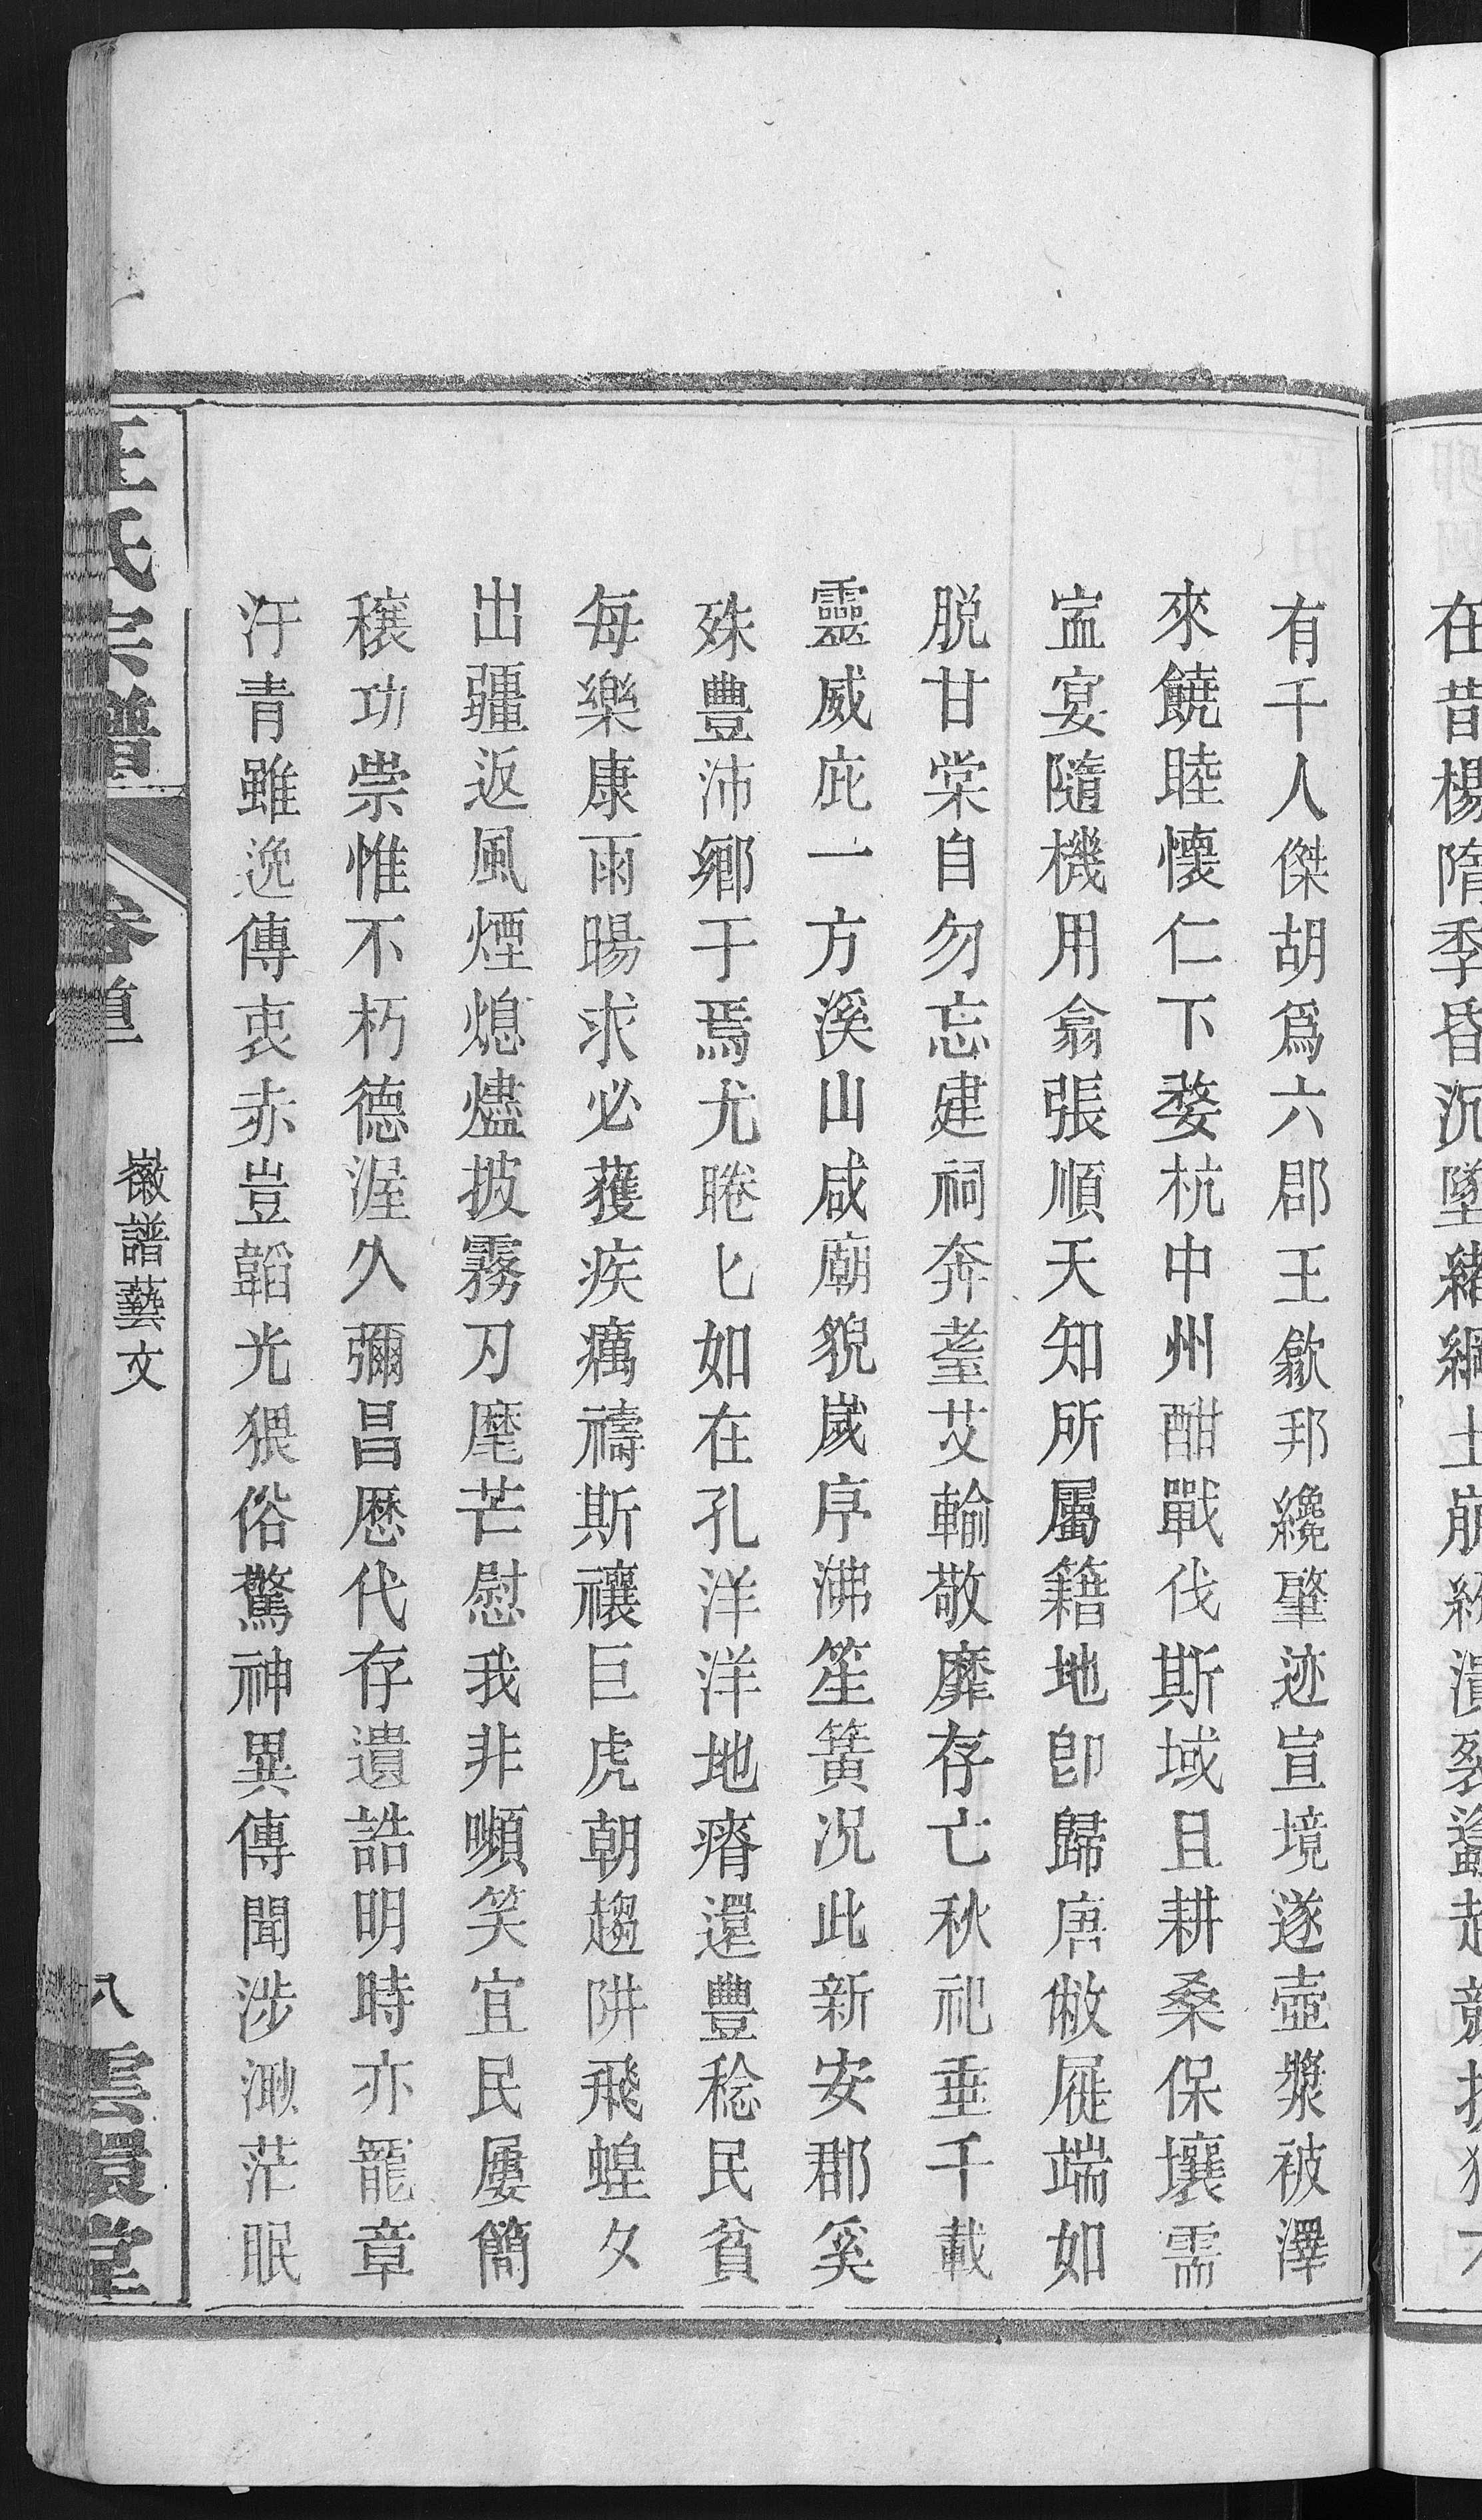 在昔楊隋季昏沉墜緒綱土崩
有千人傑胡爲六郡王歙邦纔肇迹宣境遂壺漿被澤
來饒睦懷仁下婺杭中州酣戰伐斯域且耕桑保壤需
寍宴隨機用翕張順天知所屬籍地卽歸唐敝屣端如
脱甘棠自勿忘建祠奔耋艾輸敬靡存亡秋祀垂千載
靈威庇一方溪山咸廟貌歲序沸笙簧况此新安郡奚
殊豐沛鄉于焉尤睠匕如在孔洋洋地瘠還豐稔民貧
每樂康雨暘求必蓰疾癘禱斯禳巨虎朝趨阱飛蝗夕
出疆返風煙熄燼披霧刀麾芒慰我非嚬笑宜民屢簡
穰功崇惟不朽德渥久彌昌歷代存遺誥明時亦寵章
汗青雖逸傳衷赤豈韜光猥俗驚神異傳聞涉渺茫眠
汪氏宗譜
卷首
徽譜藝文
八
雲環堂